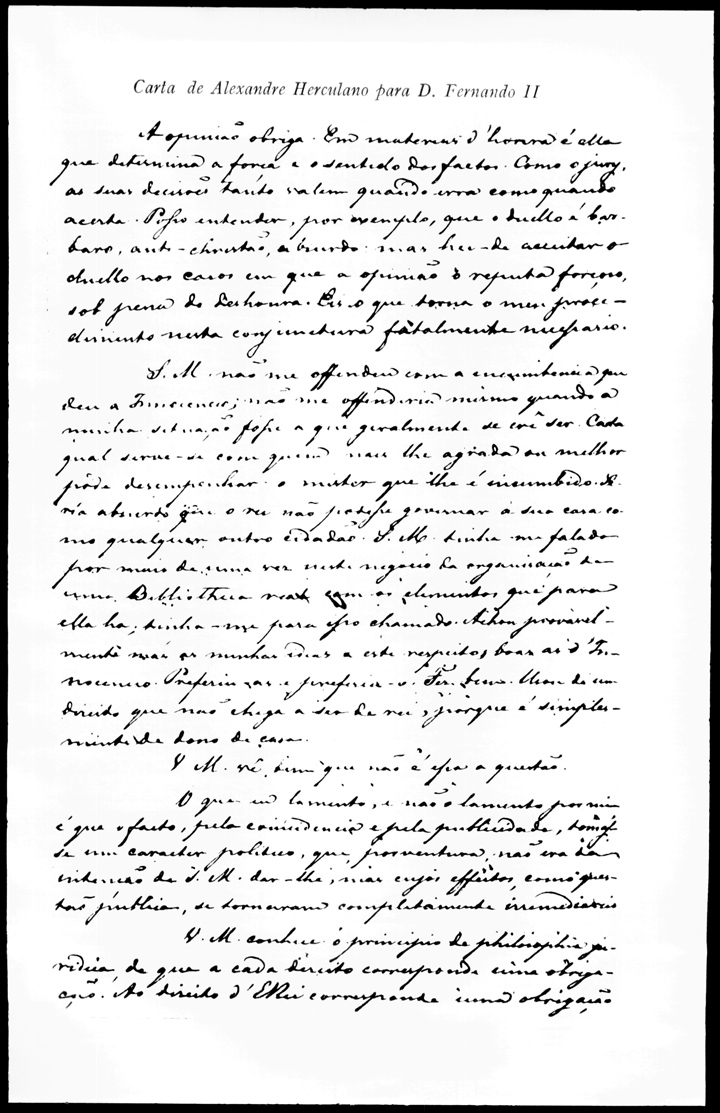 Carta de Alexandre Herculano para D. Fernando II
A opinião obriga. Em materias d'honra é ella
que determina a força e o sentido dos factos. Como o jury,
as suas decisões tanto valem quando erra como quando
acerta. Posso entender, por exemplo, que o duello é bar-
baro, anti-christão, absurdo: mas hei-de acceitar o
duello nos casos em que a opinião o reputa forçoso,
sob pena de deshonra. Eis o que torna o meu proce-
dimento nesta conjunctura fatalmente necessario.
S. M. não me offendeu com a que
deu a Innocencio; não me offenderia mesmo quando a
minha situação fosse a que geralmente se crê ser. Cada
qual serve-se com quem mais lhe agrada ou melhor
póde desempenhar o mister que lhe é incumbido. Se-
ria absurdo que o rei não podesse governar a sua casa co-
mo qualquer outro cidadão. S. M. tinha-me falado
por mais de uma vez neste negocio da organisação de
uma Bibliotheca real com os elementos que para
ella ha; tinha-me para isso chamado. Achou provavel-
mente más as minhas idéas a este respeito, boas as d'In-
nocencio. Preferiu-as e preferiu-o. Fez bem. Usou de um
direito que não chega a ser de rei, porque é simples-
mente de dono de casa.
V. M. vê bem que não é essa a questão.
O que eu lamento, e não o lamento por mim
é que o facto, pela coincidencia e pela publicidade,
se um caracter politico, que, porventura, não era da
intenção de S. M. dar-lhe, mas cujos effeitos, como ques-
tão publica, se tornaram completamente irremediaveis
V. M. conhece o principio de philosophia ju-
ridica, de que a cada direito corresponde uma obriga-
ção. Ao direito d'ElRei corresponde uma obrigação